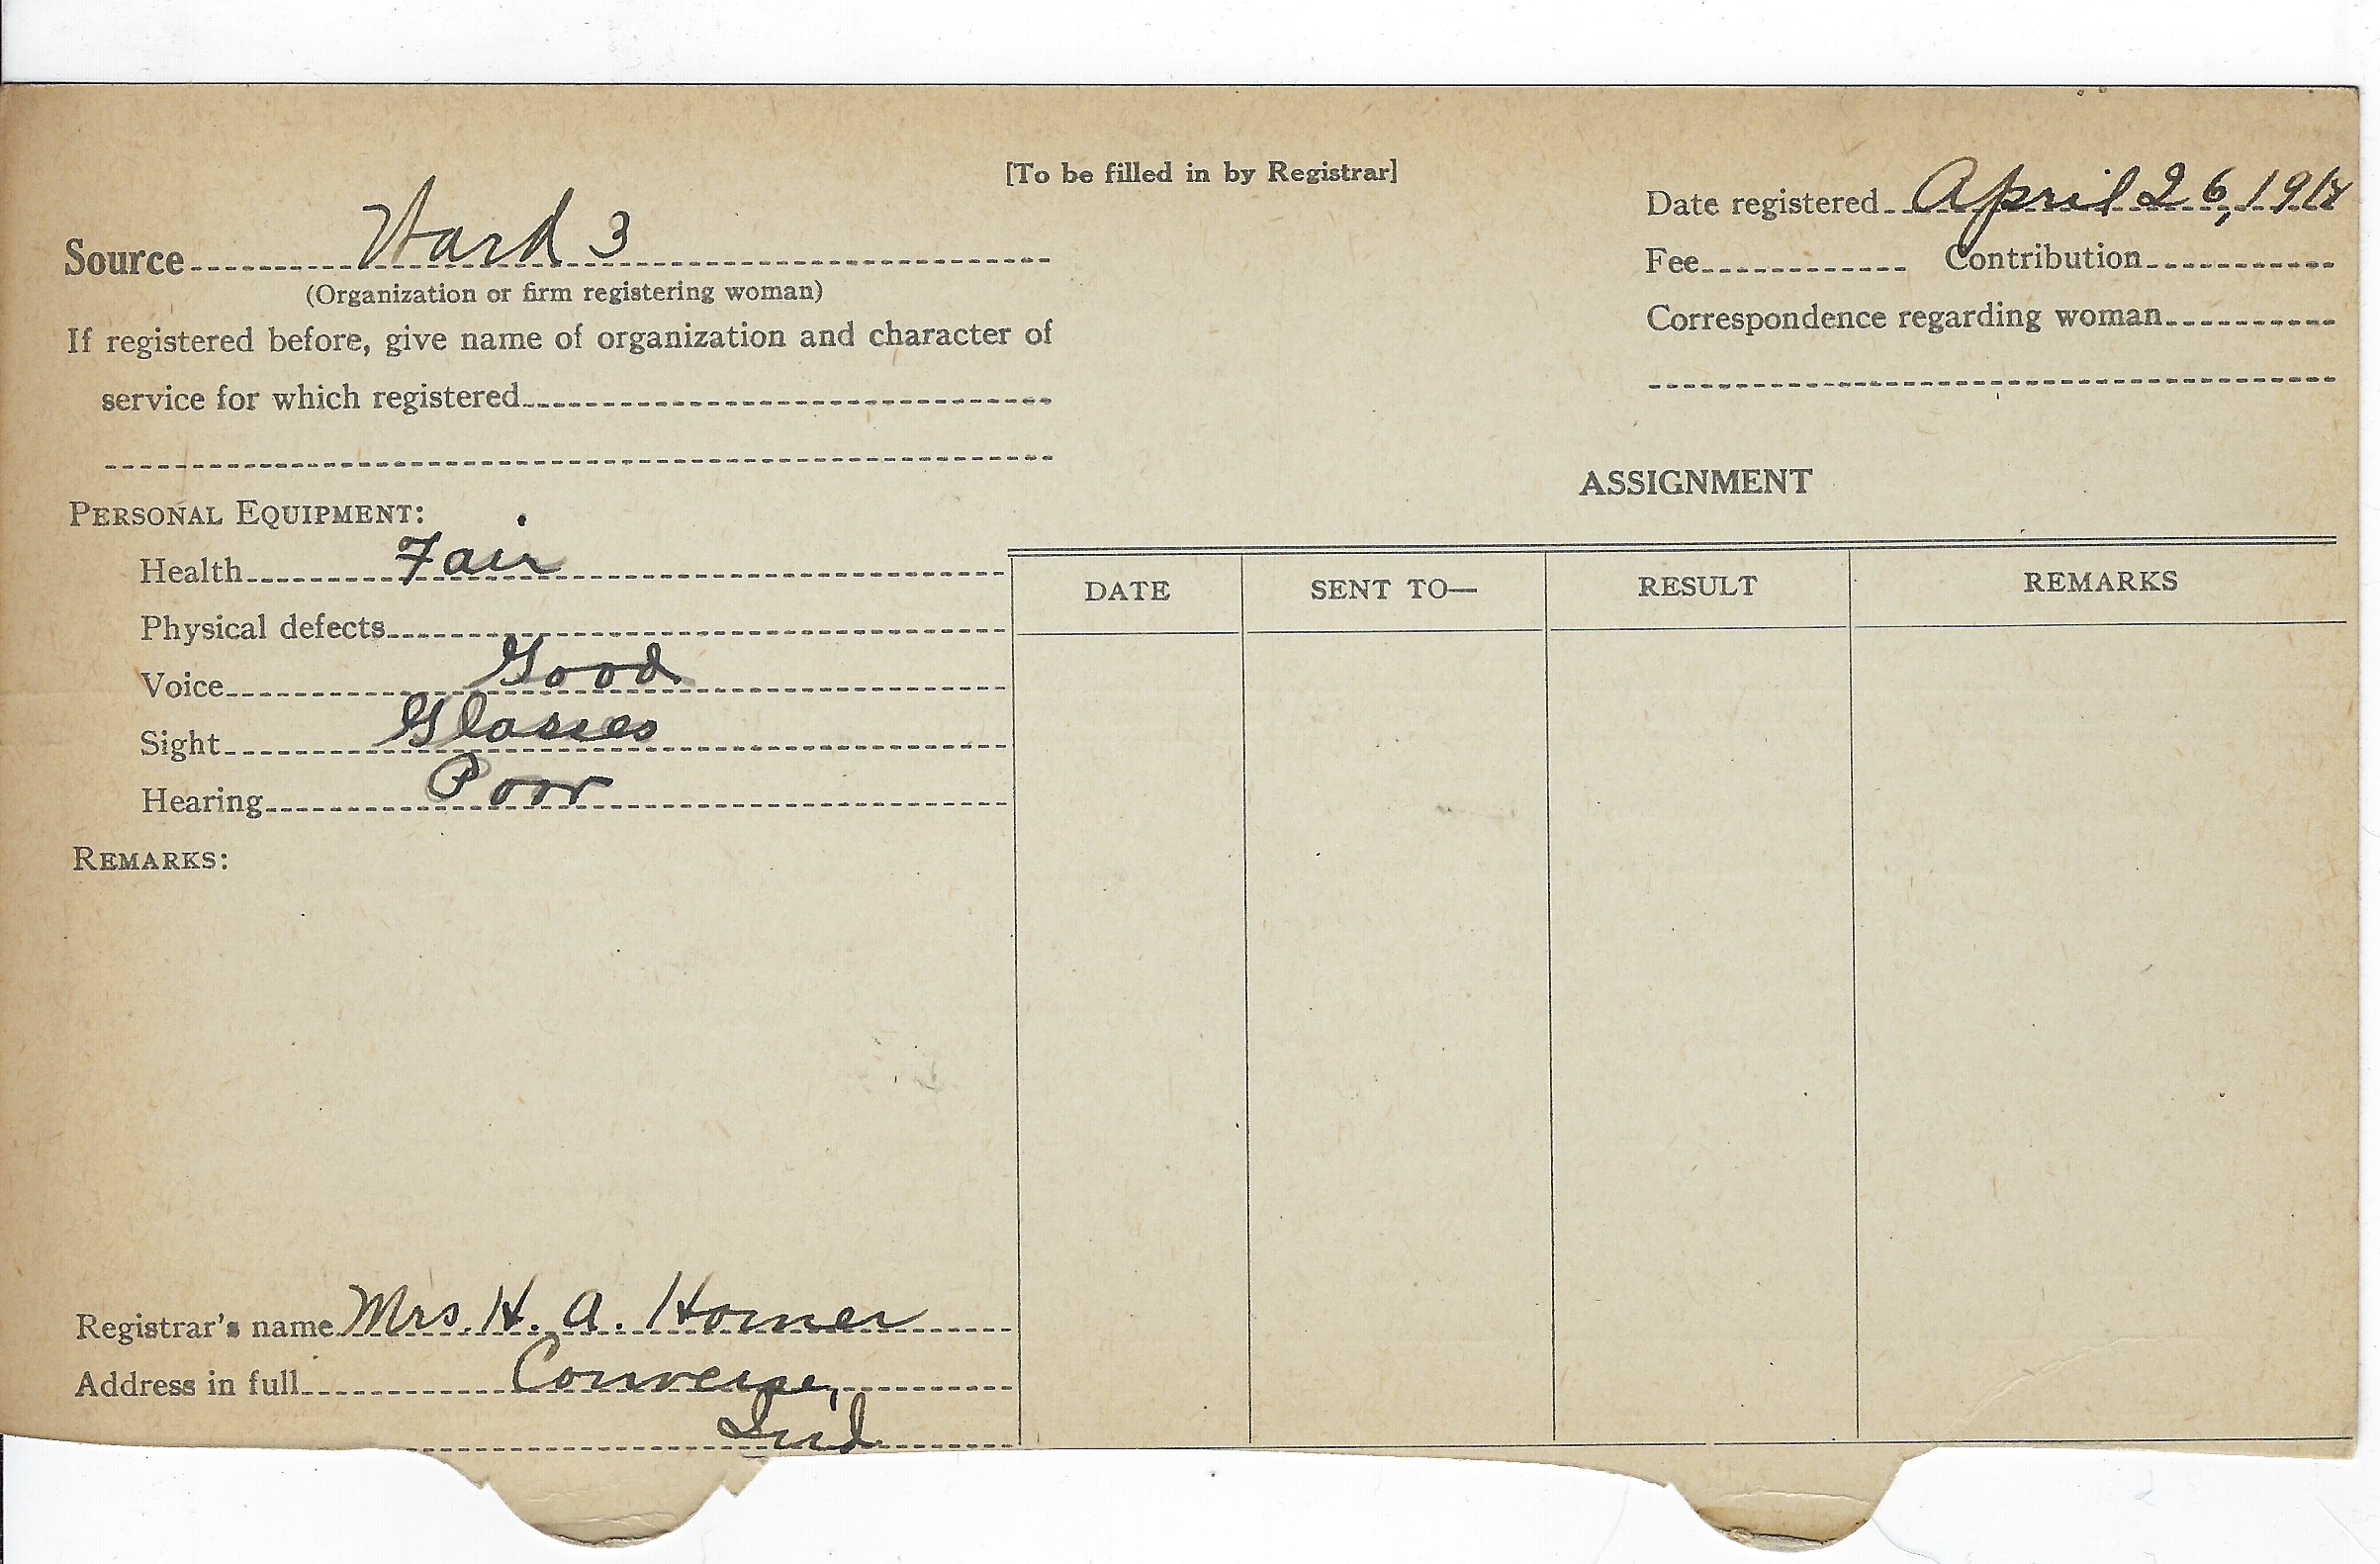 [To be filled in by Registrar]
Date registered April 26, 1918
Source Ward 3
Fee Contribution
(Organization or firm registering woman)
Correspondence regarding woman
If registered before, give name of organization and character of
service for which registered
ASSIGNMENT
PERSONAL EQUIPMENT:
Health Fair
DATE SENT TO— RESULT REMARKS
Physical defects
Voice Good
Sight Glasses
Hearing Poor
REMARKS:
Registrar's name Mrs. H. A. Horner
Address in full Converse,
Ind